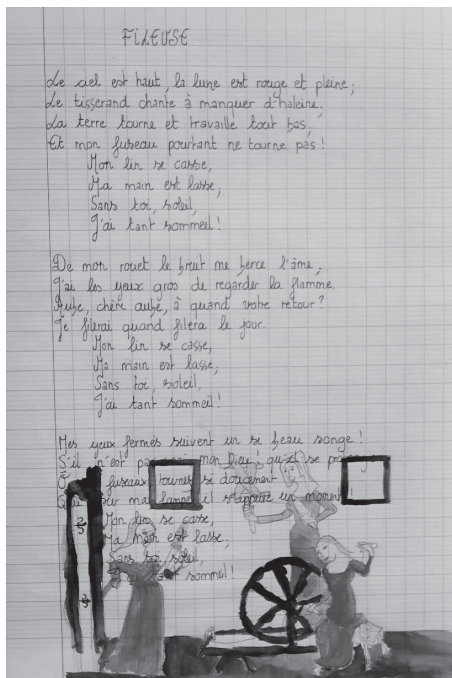 FILEUSE
Le ciel est haut, la lune est rouge et pleine ;
Le tisserand chante à manquer d'haleine.
La terre tourne et travaille tout bas,
Et mon fuseau pourtant ne tourne pas !
Mon lin se casse,
Ma main est lasse,
Sans toi, soleil,
J'ai tant sommeil !
De mon rouet le bruit me berce l'âme,
J'ai les yeux gros de regarder la flamme,
Aube, chère aube, à quand votre retour ?
Je filerai quand filera le jour.
Mon lin se casse,
Ma main est lasse,
Sans toi, soleil,
J'ai tant sommeil !
Mes yeux fermés suivent un si beau songe !
S'il n'est pas mon Dieu ! qu'il se
fuseaux tournez si doucement
ma lampe il s'appuie un moment
Mon lin se casse,
Ma main est lasse,
Sans toi, soleil,
tant sommeil !